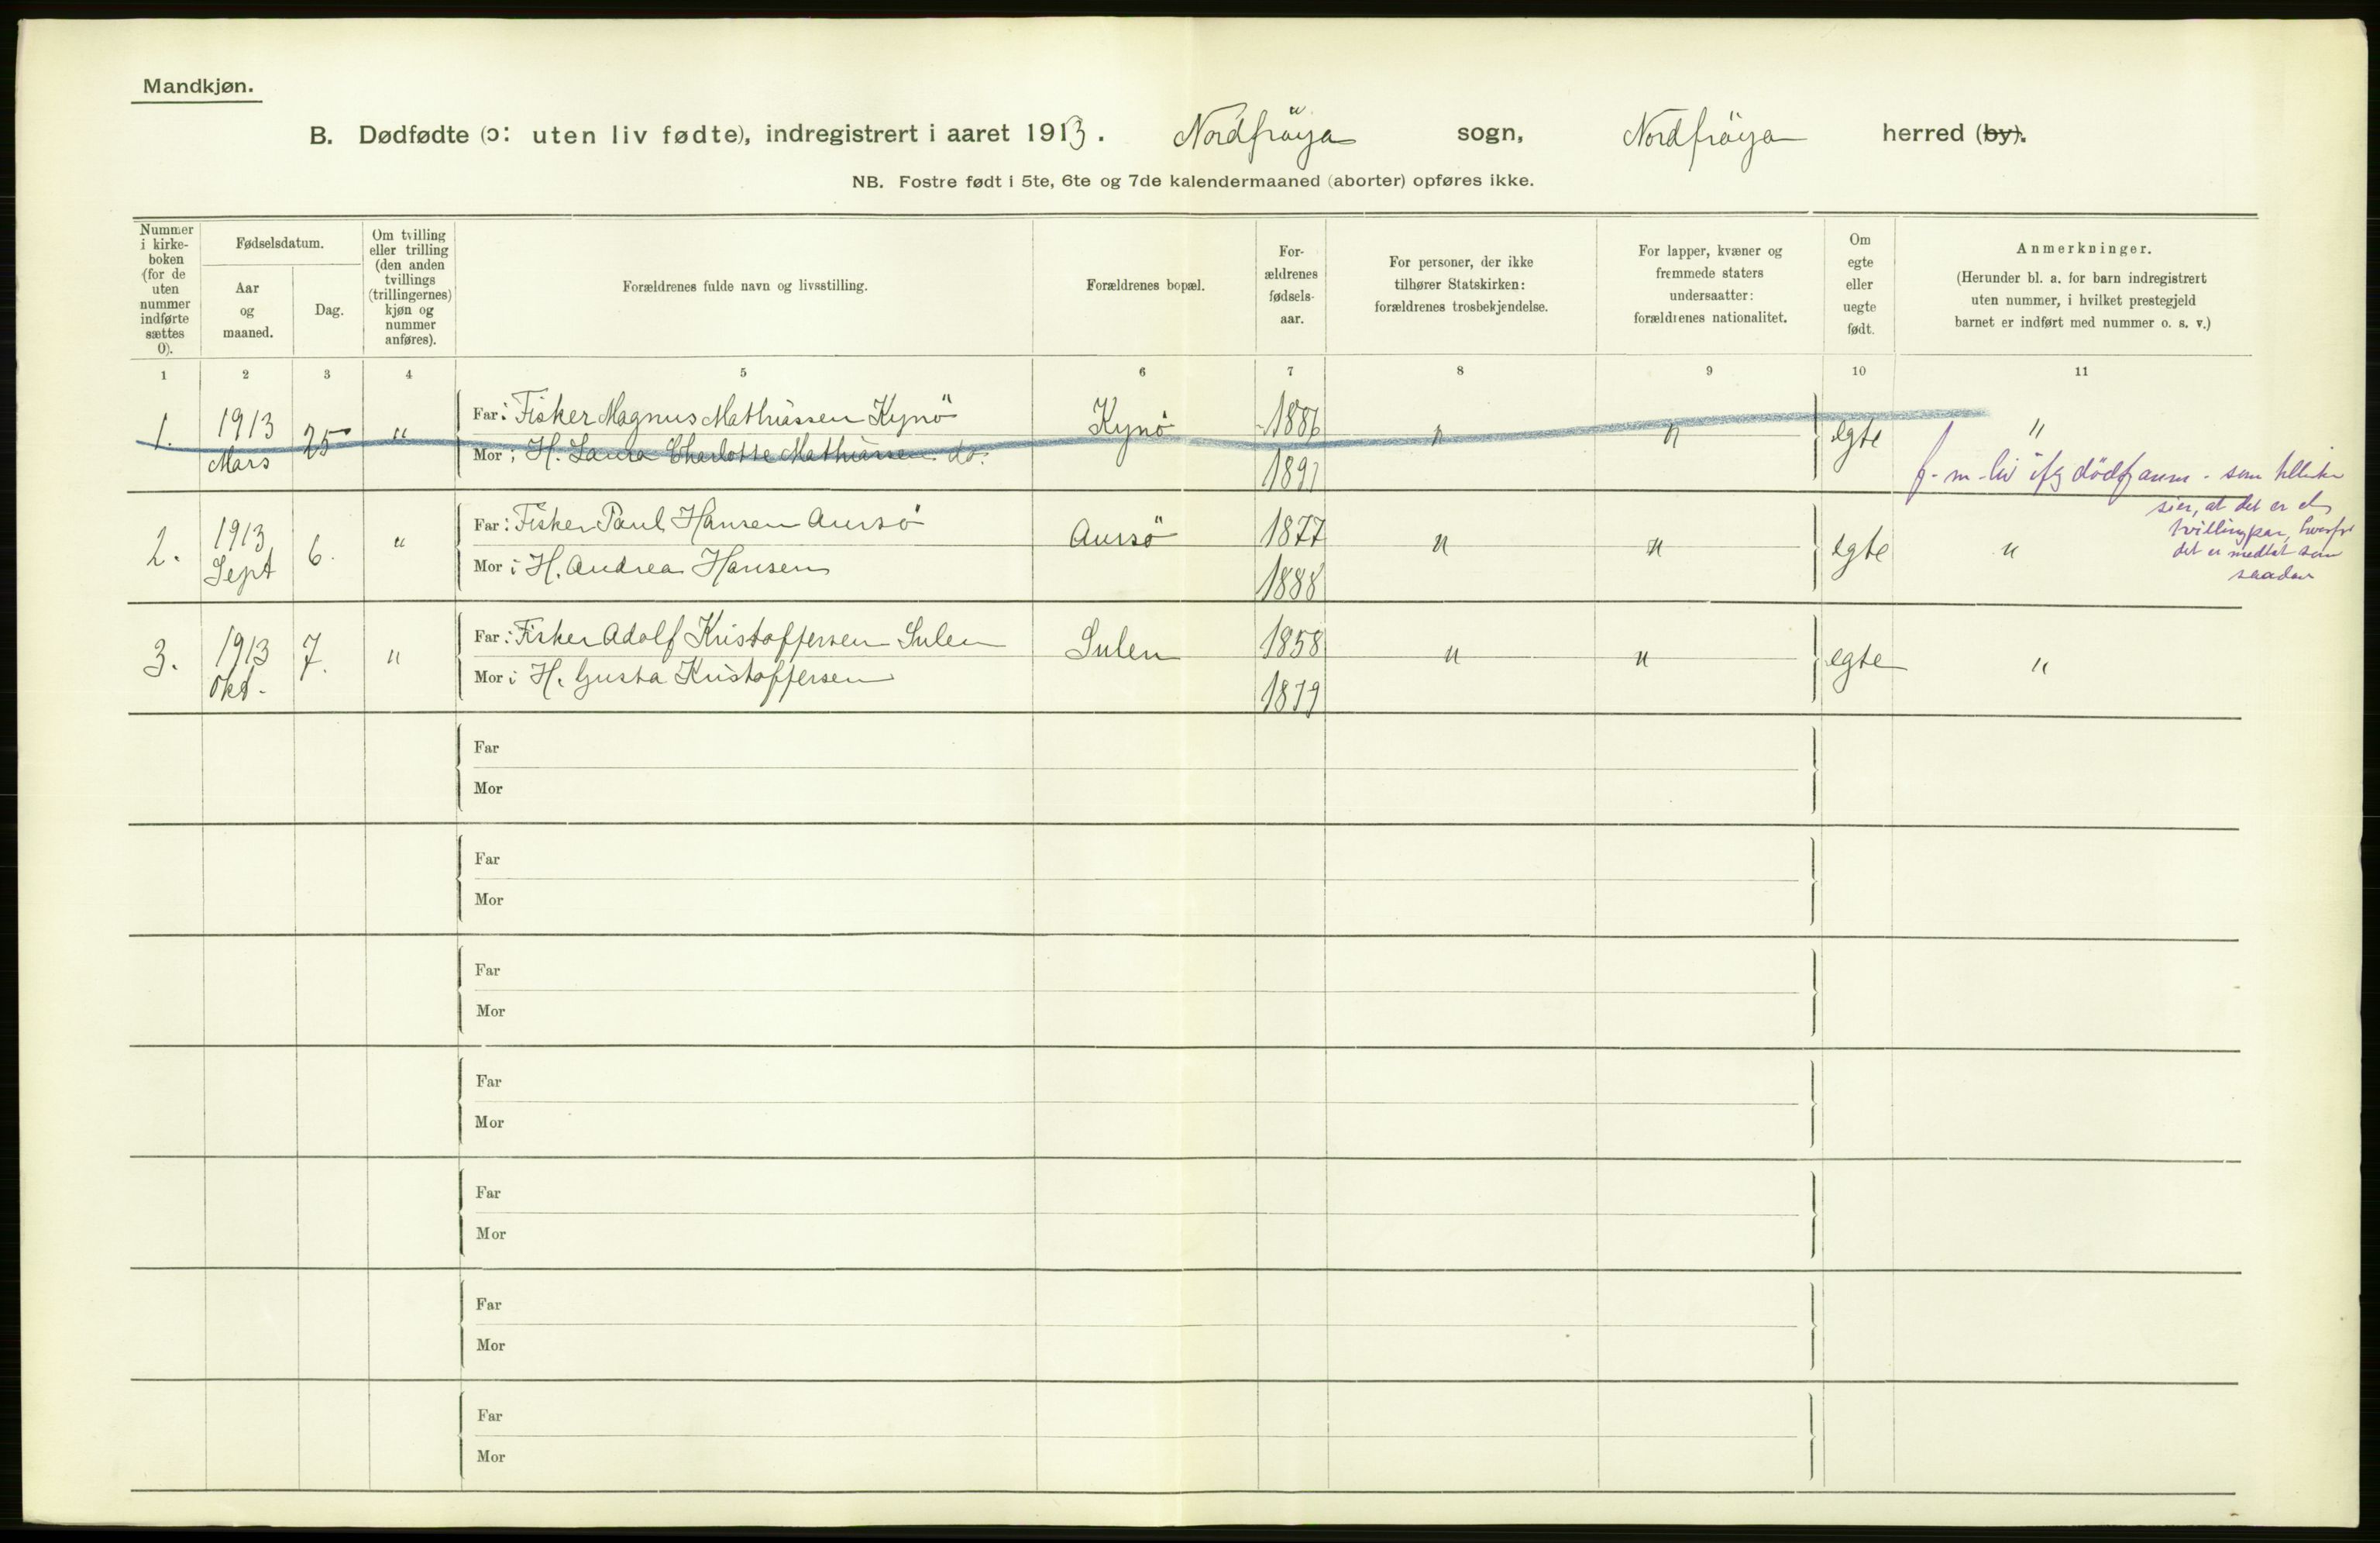 Mandkjøn.
B. Dødfødte (ɔ: uten liv fødte), indregistrert i aaret 1913. Nordfröya sogn, Nordfröya herred (by).
NB. Fostre født i 5te, 6te og 7de kalendermaaned (aborter) opføres ikke.
Nummer i kirke-boken (for de uten nummer indførte sættes 0).
Fødselsdatum.
Aar og maaned.
Dag.
Om tvilling eller trilling (den anden tvillings (trillingernes) kjøn og nummer anføres).
Forældrenes fulde navn og livsstilling.
Forældrenes bopæl.
For-ældrenes fødsels-aar.
For personer, der ikke tilhører Statskirken: forældrenes trosbekjendelse.
For lapper, kvæner og fremmede staters undersaatter: forældrenes nationalitet.
Om egte eller uegte født.
Anmerkninger.
(Herunder bl. a. for barn indregistrert uten nummer, i hvilket prestegjeld barnet er indført med nummer o. s. v.)
1 2 3 4 5 6 7 8 9 10 11
1. 1913 Mars 25 " Far: Fisker Magnus Mathiassen Kynö Kynö 1886 " " egte "
Mor: H. Laura Charlotte Mathiassen do. 1891
f. m. liv ifg dödf anm. - som
sier, at det er et
tvillingpar, hvorfor
det er medtat som
saadan
2. 1913 Sept 6. " Far: Fisker Paul Hansen Aursö Aursö 1877 " " egte "
Mor: H. Andrea Hansen 1888
3. 1913 Okt. 7. " Far: Fisker Adolf Kristoffersen Sulen Sulen 1858 " " egte "
Mor: H. Gusta Kristoffersen 1879
Far
Mor
Far
Mor
Far
Mor
Far
Mor
Far
Mor
Far
Mor
Far
Mor